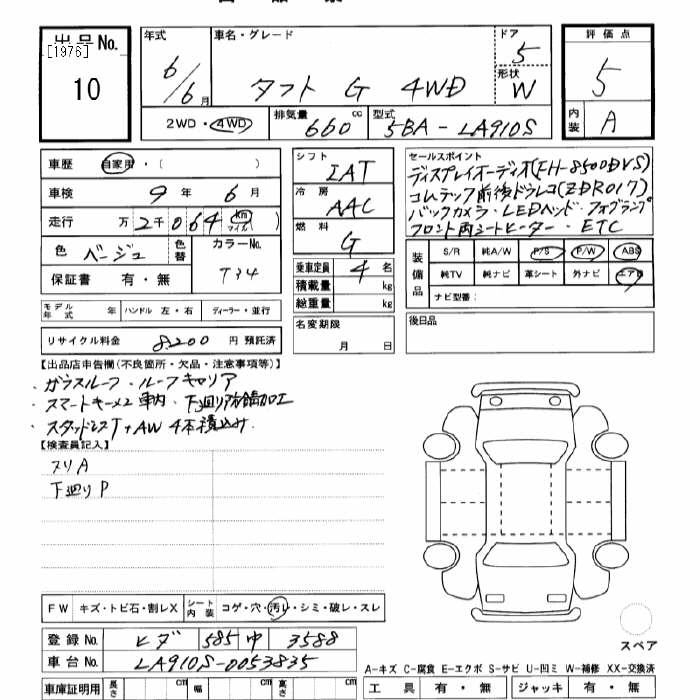 出品No.
[1976]
10
年式
6/6月
車名・グレード
タフト G 4WD
ドア
5
形状
W
評価点
5
内装
A
2WD・4WD
排気量
660cc
型式
5BA-LA910S
車歴 自家用・( )
車検 9年 6月
走行 万2千064 km マイル
色 ベージュ 色替 カラーNo. T34
保証書 有・無
シフト
IAT
冷房
AAC
燃料
G
乗車定員 4名
積載量 kg
総重量 kg
セールスポイント
ディスプレイオーディオ(FH-8500DVS)
コムテック前後ドラレコ(ZDR017)
バックカメラ・LEDヘッド・フォグランプ
フロント両シートヒーター・ETC
装備品
S/R 純A/W P/S P/W ABS
純TV 純ナビ 革シート 外ナビ エアB
ナビ型番:
モデル年式 年 ハンドル 左・右 ディーラー・並行
リサイクル料金 8200円 預託済
名変期限
月 日
後日品
【出品店申告欄(不良箇所・欠品・注意事項等)】
・ガラスルーフ・ルーフキャリア
・スマートキー×2 車内・下廻り防錆加工
・スタッドレスT+AW 4本積込み.
【検査員記入】
スリA
下廻りP
FW キズ・トビ石・割レX シート内装 コゲ・穴・汚レ・シミ・破レ・スレ
登録No. 585 3588
車台No. LA910S-0053835
車庫証明用 長さ cm 幅 cm 高さ cm
スペア
A-キズ C-腐食 E-エクボ S-サビ U-凹ミ W-補修 XX-交換済
工具 有・無 ジャッキ 有・無